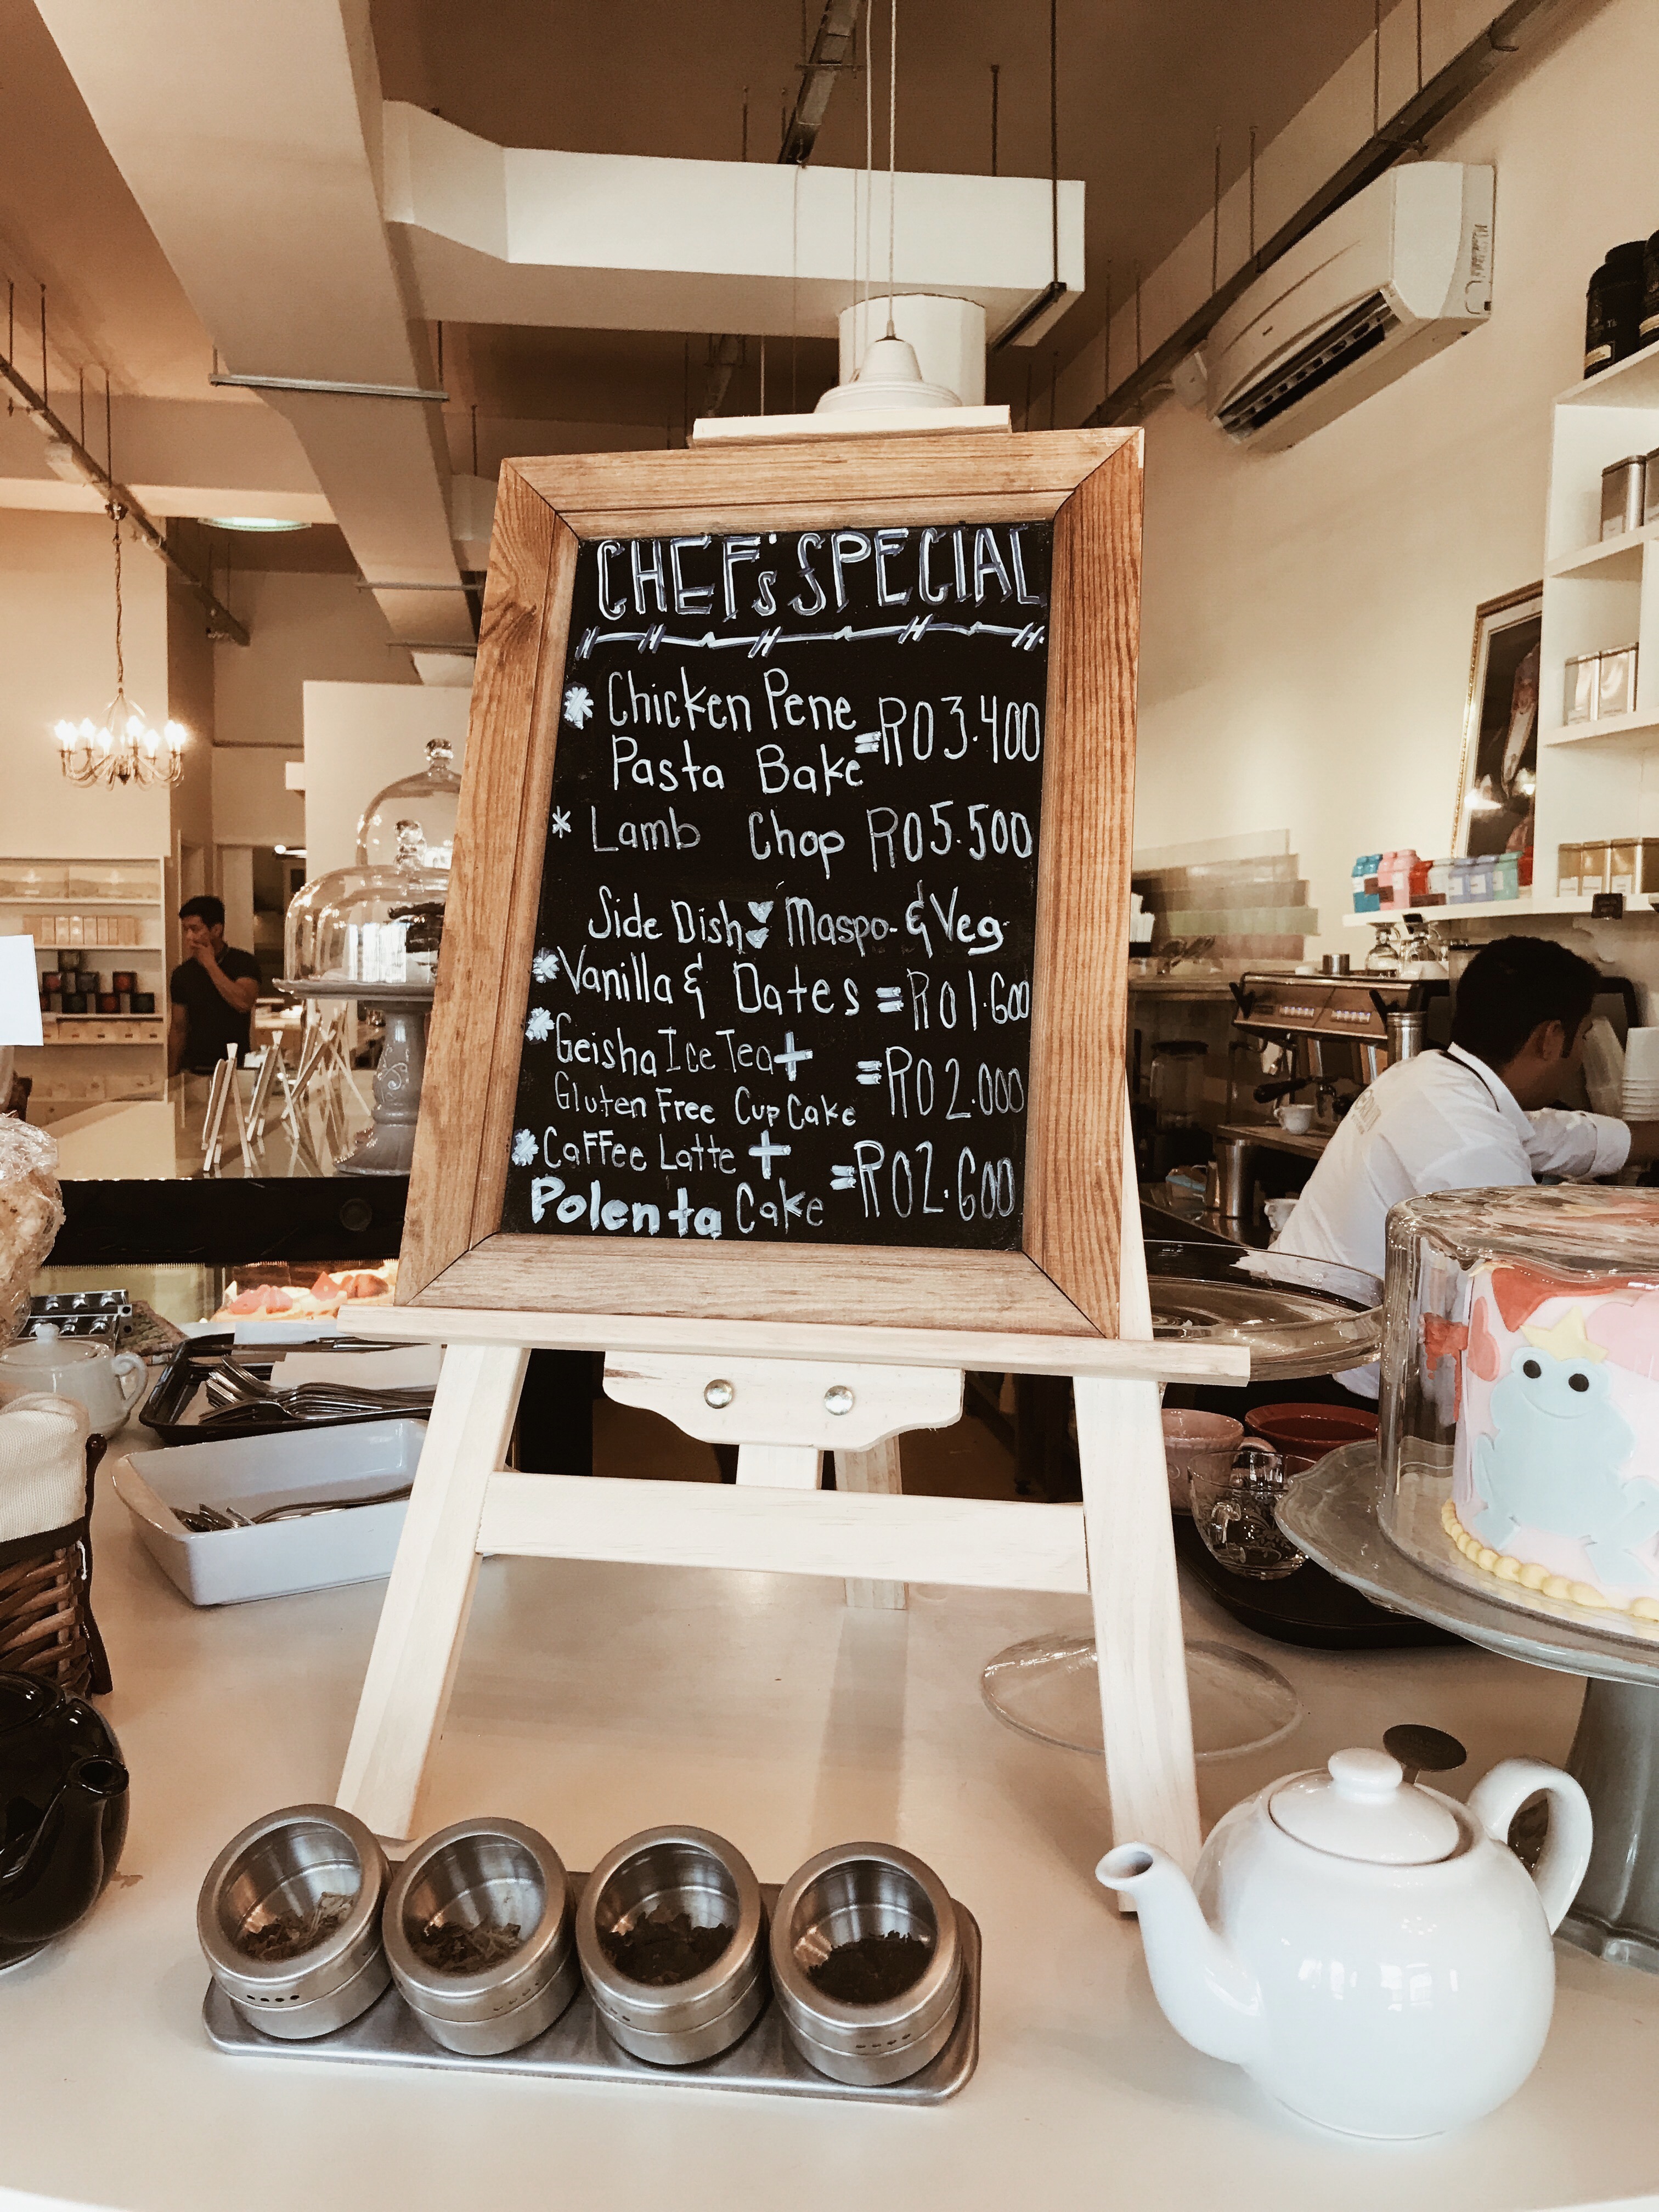 CHEF's SPECIAL
* Chicken Pene
Pasta Bake = RO 3.400
* Lamb Chop RO 5.500
Side Dish: Maspo. & Veg
* Vanilla & Dates = RO 1.600
* Geisha Ice Tea +
Gluten Free Cup Cake = RO 2.000
* CaFFee Latte +
Polenta Cake = RO 2.600